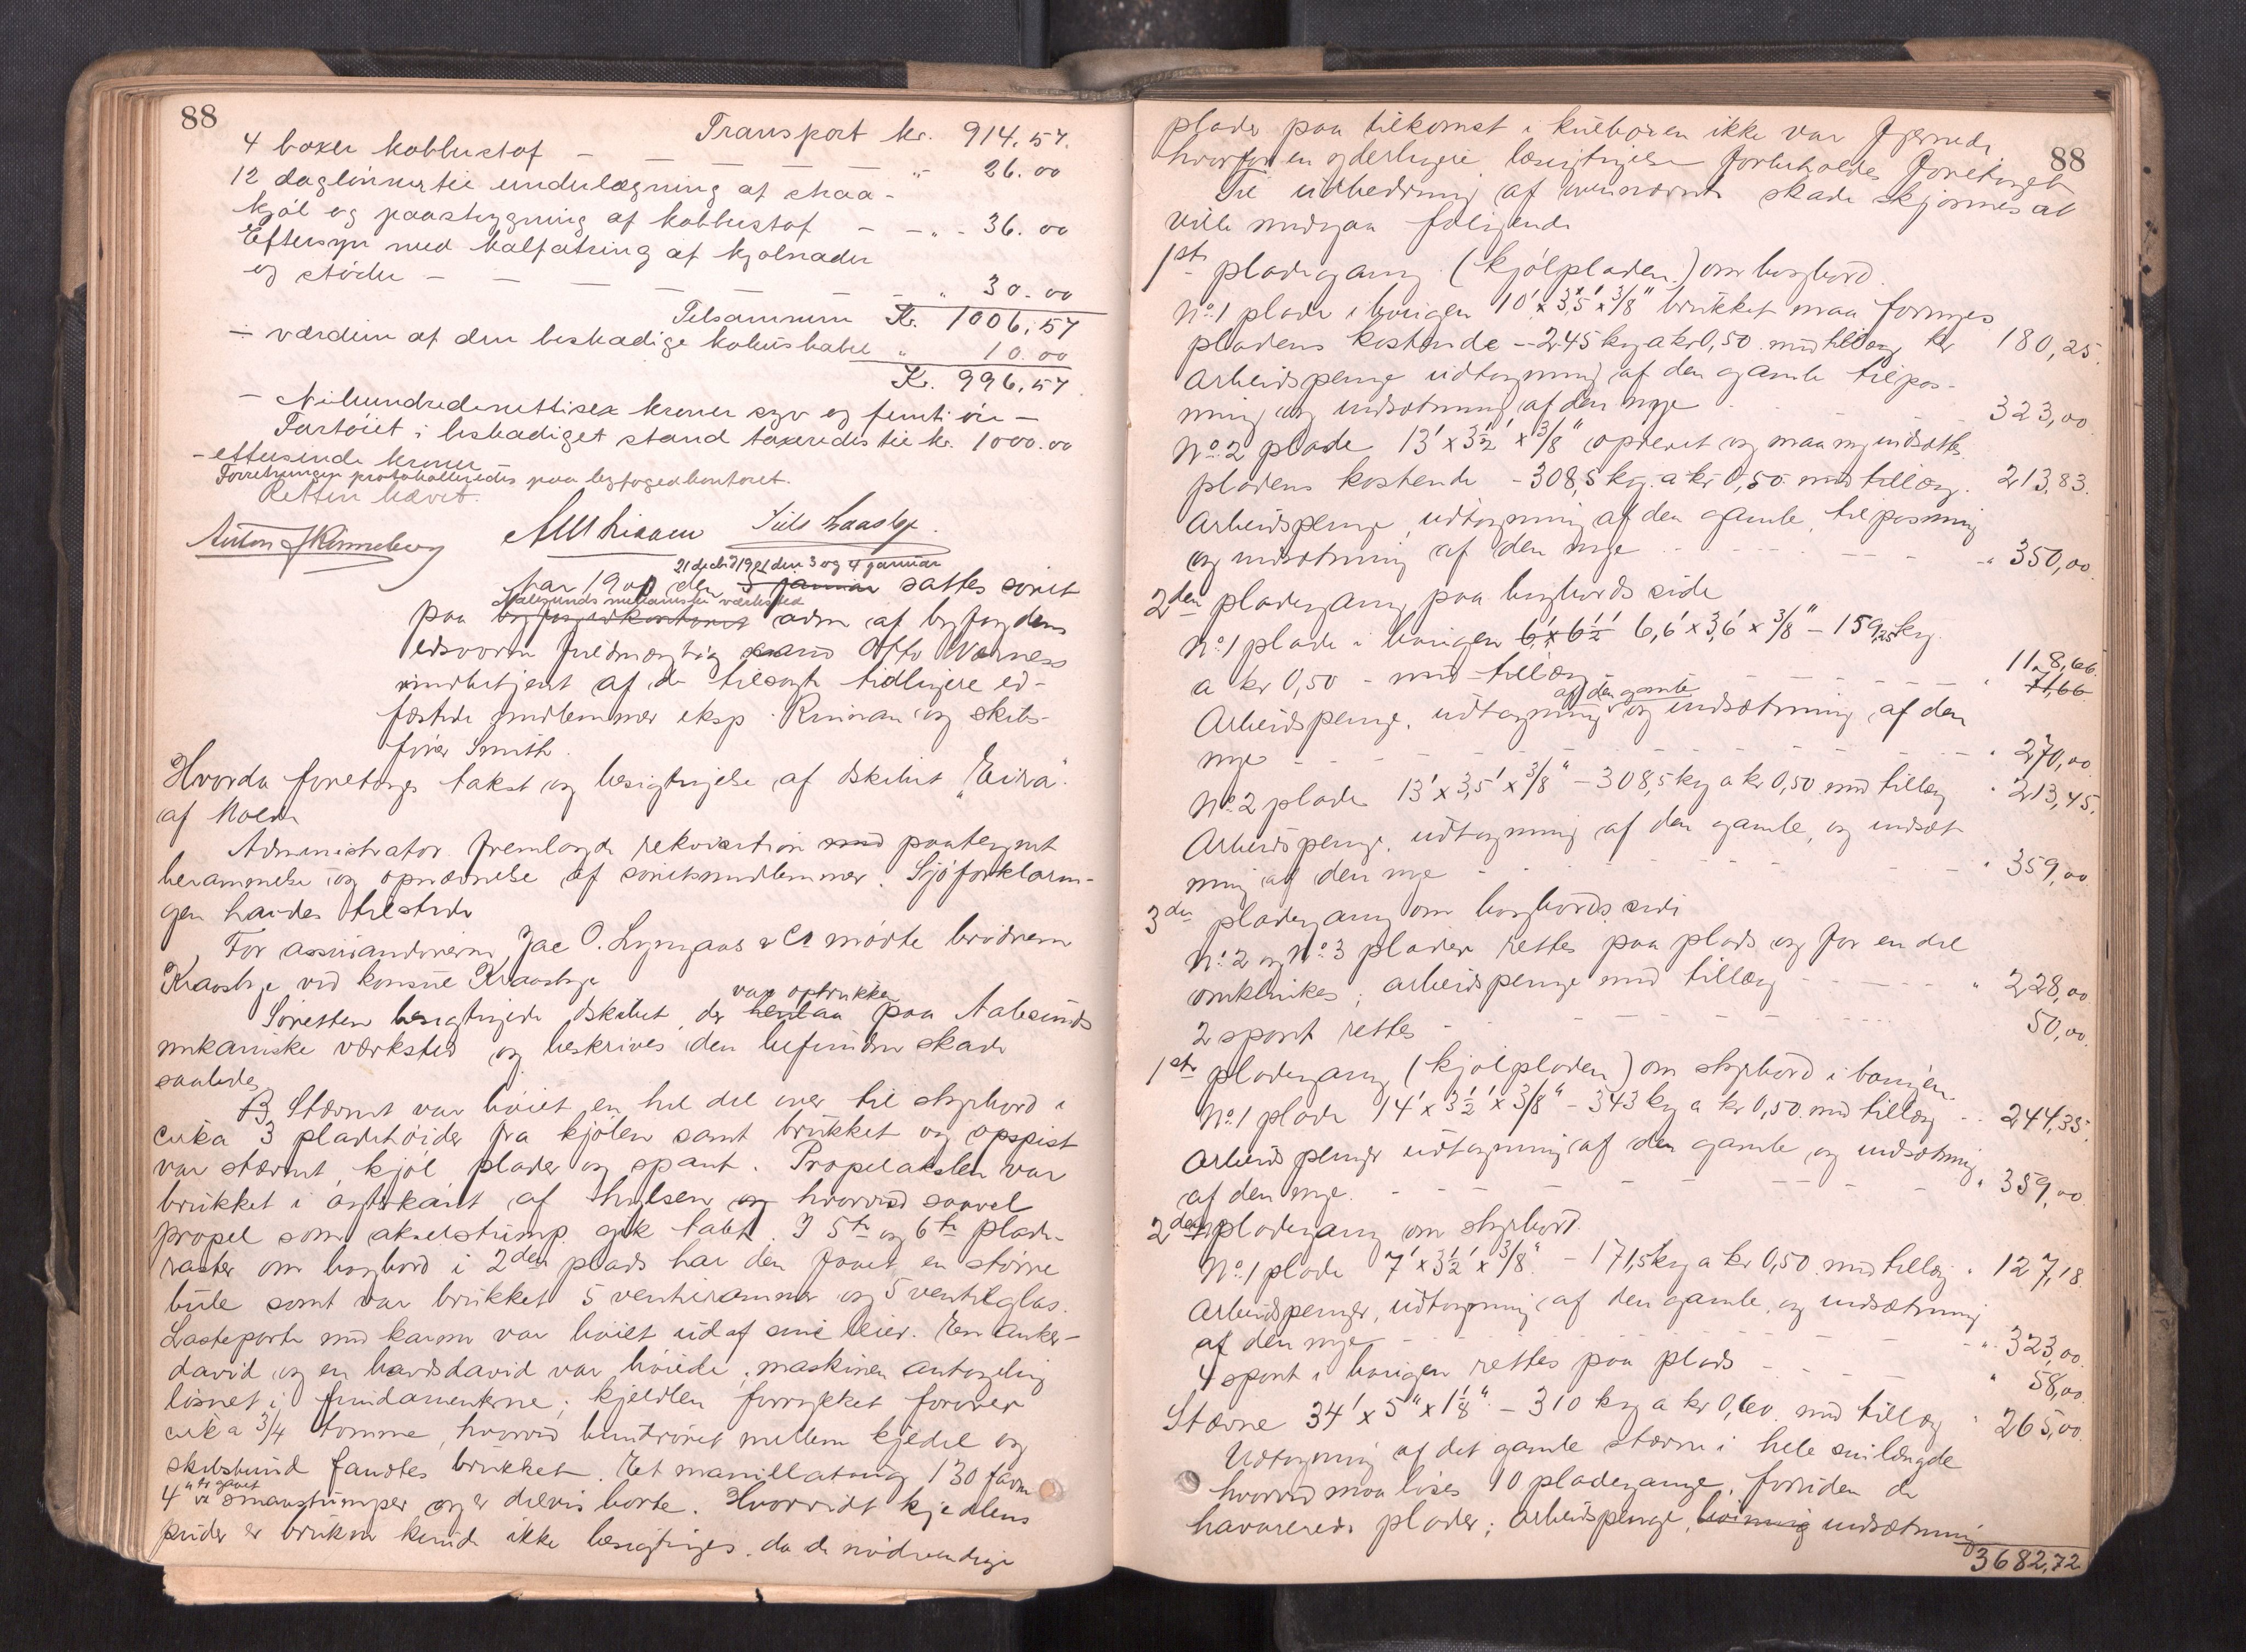 88
Transport kr. 914.57.
4 boxer kobberstof — — — — — " 26.00
12 daglönner til underlægning af straa-
kjöl og paastrygning af kobberstof — — " — 36.00
Eftersyn med kalfatring af kjølnader
og støder — — — — — — " 30.00
Tilsammen Kr. 1006,57
÷ værdien af den beskadige kobberhabel " 10.00
Kr. 996,57.
— Nihundredenittisex kroner syv og femti öre —
Fartöiet i beskadiget stand taxeredes til kr. 1000.00
— ettusende kroner —
Forretningen protokolleredes paa byfogedkontoret.
Retten hævet.
Anton J Rønneberg
21 decbr 1901 den 3 og 4 januar
Aar 1900 den 3 januar sattes söret
Aalesunds mekaniske værksted
paa byfogedkontoret adm af byfogdens
edsvorne fuldmægtig cand Otto Værness
medbetjent af de tilsagte tidligere ed-
fæstede medlemmer eksp. Rinnan og skibs-
fører Smith.
Hvorda foretoges takst og besigtigelse af dskibet "Eira"
af Molde
Administrator fremlagde rekvisition med paategnet
berammelse og opnævnelse af söretsmedlemmer. Sjöforklarin-
gen havdes tilstede
For assurandörerne Jac O. Lyngaas & Co mödte brödrene
Kraasbye ved konsul Kraasbye
var optrukken
Söretten besigtigede dskibet, der henlaa paa Aalesunds
mekaniske værksted og beskrives den befundne skade
saaledes
Stævnet var böiet en hel del over til styrbord i
cirka 3 pladehöider fra kjölen samt brukket og opspist
var stævnt, kjöl plader og spant. Propelakslen var
brukket i agterkant af hylsen og hvorved saavel
propel som akselstump gik tabt. I 5te og 6te plade-
raster om bagbord i 2den plads har den faaet en större
bule samt var brukket 5 ventilrammer og 5 ventilglas.
Lasteporte med karmer var böiet ud af sine leier. En anker-
david og en baadsdavid var böiede; maskinen antagelig
lösnet i fundamenterne; kjedlen forrykket forover
cirka 3/4 tomme, hvorved bundröret mellem kjedel og
skibsbund fandtes brukket. Et manillatoug 130 favn
4" er gaaet i smaastumper og er delvis borte. Hvorvidt kjedlens
puder er brukne kunde ikke besigtiges, da de nödvendige
88
plader paa tilkomst i kulboxen ikke var fjernede
hvorfor en yderligere besigtigelse forbeholdes foretaget
Til udbedring af ovennævnte skade skjønnes at
ville medgaa følgende
1ste pladegang (kjölpladen) om bagbord.
No 1 plade i bougen 10' x 3,5' x 3/8" brukket maa fornyes
pladens kostende — 245 kg a kr 0,50 med tillæg kr 180,25.
Arbeidspenge udtagning af den gamle tilpas-
ning og indsætning af den nye — — 323,00
No 2 plade 13' x 3½' x 3/8" oprevet og maa nyindsættes.
pladens kostende — 308,5 kg. a kr 0,50 med tillæg. 213,83.
Arbeidspenge, udtagning af den gamle, tilpasning
og indsætning af den nye — — — " 350,00.
2den pladegang paa bagbords side
No 1 plade i bougen 6' x 6½' 6,6' x 3,6' x 3/8" — 159,25 kg
a kr 0,50 — med tillæg — — — " 118,66.
71,66
af den gamle
Arbeidspenge, udtagning og indsætning af den
nye — — — — — " 270,00.
No 2 plade 13' x 3,5' x 3/8" — 308,5 kg a kr 0,50 med tillæg " 213,45.
Arbeidspenge, udtagning af den gamle, og indsæt-
ning af den nye — — — " 359,00.
3die pladegang om bagbords side
No 2 og No 3 plader rettes paa plads og for en del
omklinkes; arbeidspenge med tillæg — — — " 228,00.
2 spant rettes — — — — 50,00.
1ste pladegang (kjölpladen) om styrbord i bougen.
No 1 plade 14' x 3½' x 3/8" — 343 kg a kr 0,50 med tillæg — 244,35.
Arbeidspenger udtagning af den gamle og indsætning
af den nye. — — — — " 359,00.
2den pladegang om styrbord.
No 1 plade 7' x 3½' x 3/8" — 171,5 kg a kr 0,50 med tillæg " 127,18.
Arbeidspenger, udtagning af den gamle, og indsætning
af den nye — — — — " 323,00.
4 spant i bougen rettes paa plads — — " 58,00.
Stævne 34' x 5" x 1⅛" — 310 kg a kr 0,60 med tillæg " 265,00.
Udtagning af det gamle stævne i hele sin længde
hvorved maa löses 10 pladegange, foruden de
havarerede plader; arbeidspenge, böining indsætning
3682,72